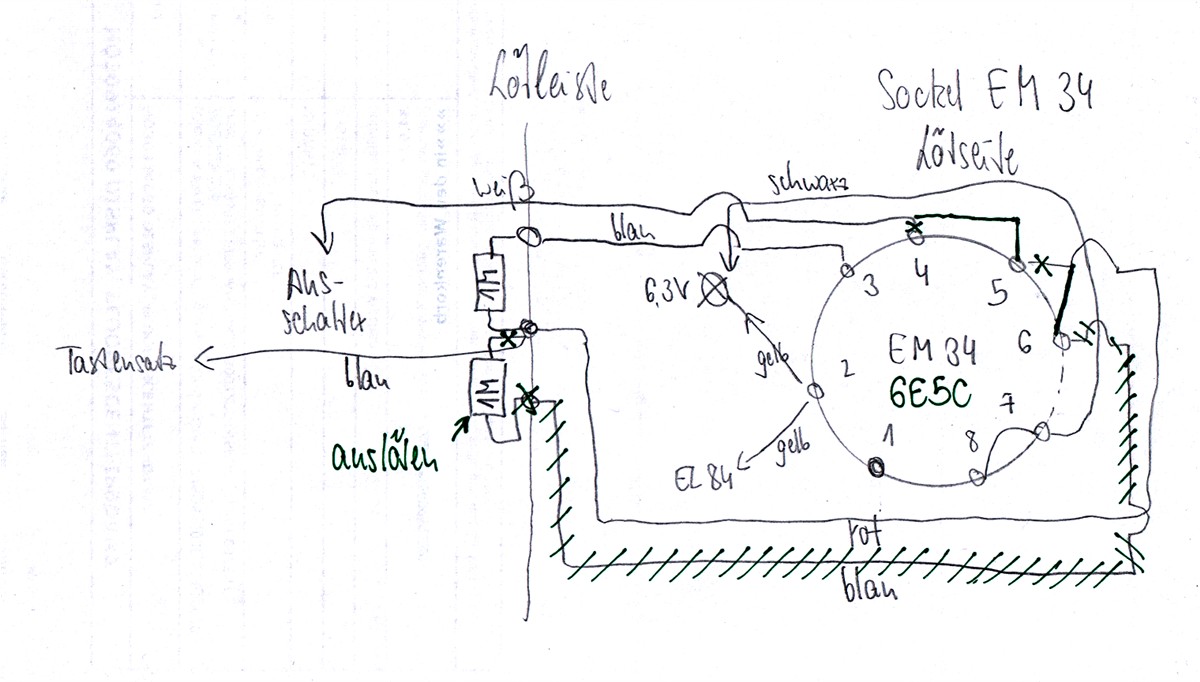 Lötleiste
Sockel EM 34
Lötseite
weiß
schwarz
blau
Aus-
schalter
1M
6,3V
3
4
5
6
Tastensatz
blau
1M
gelb
2
EM 34
6E5C
7
auslöten
gelb
1
8
EL 84
rot
blau